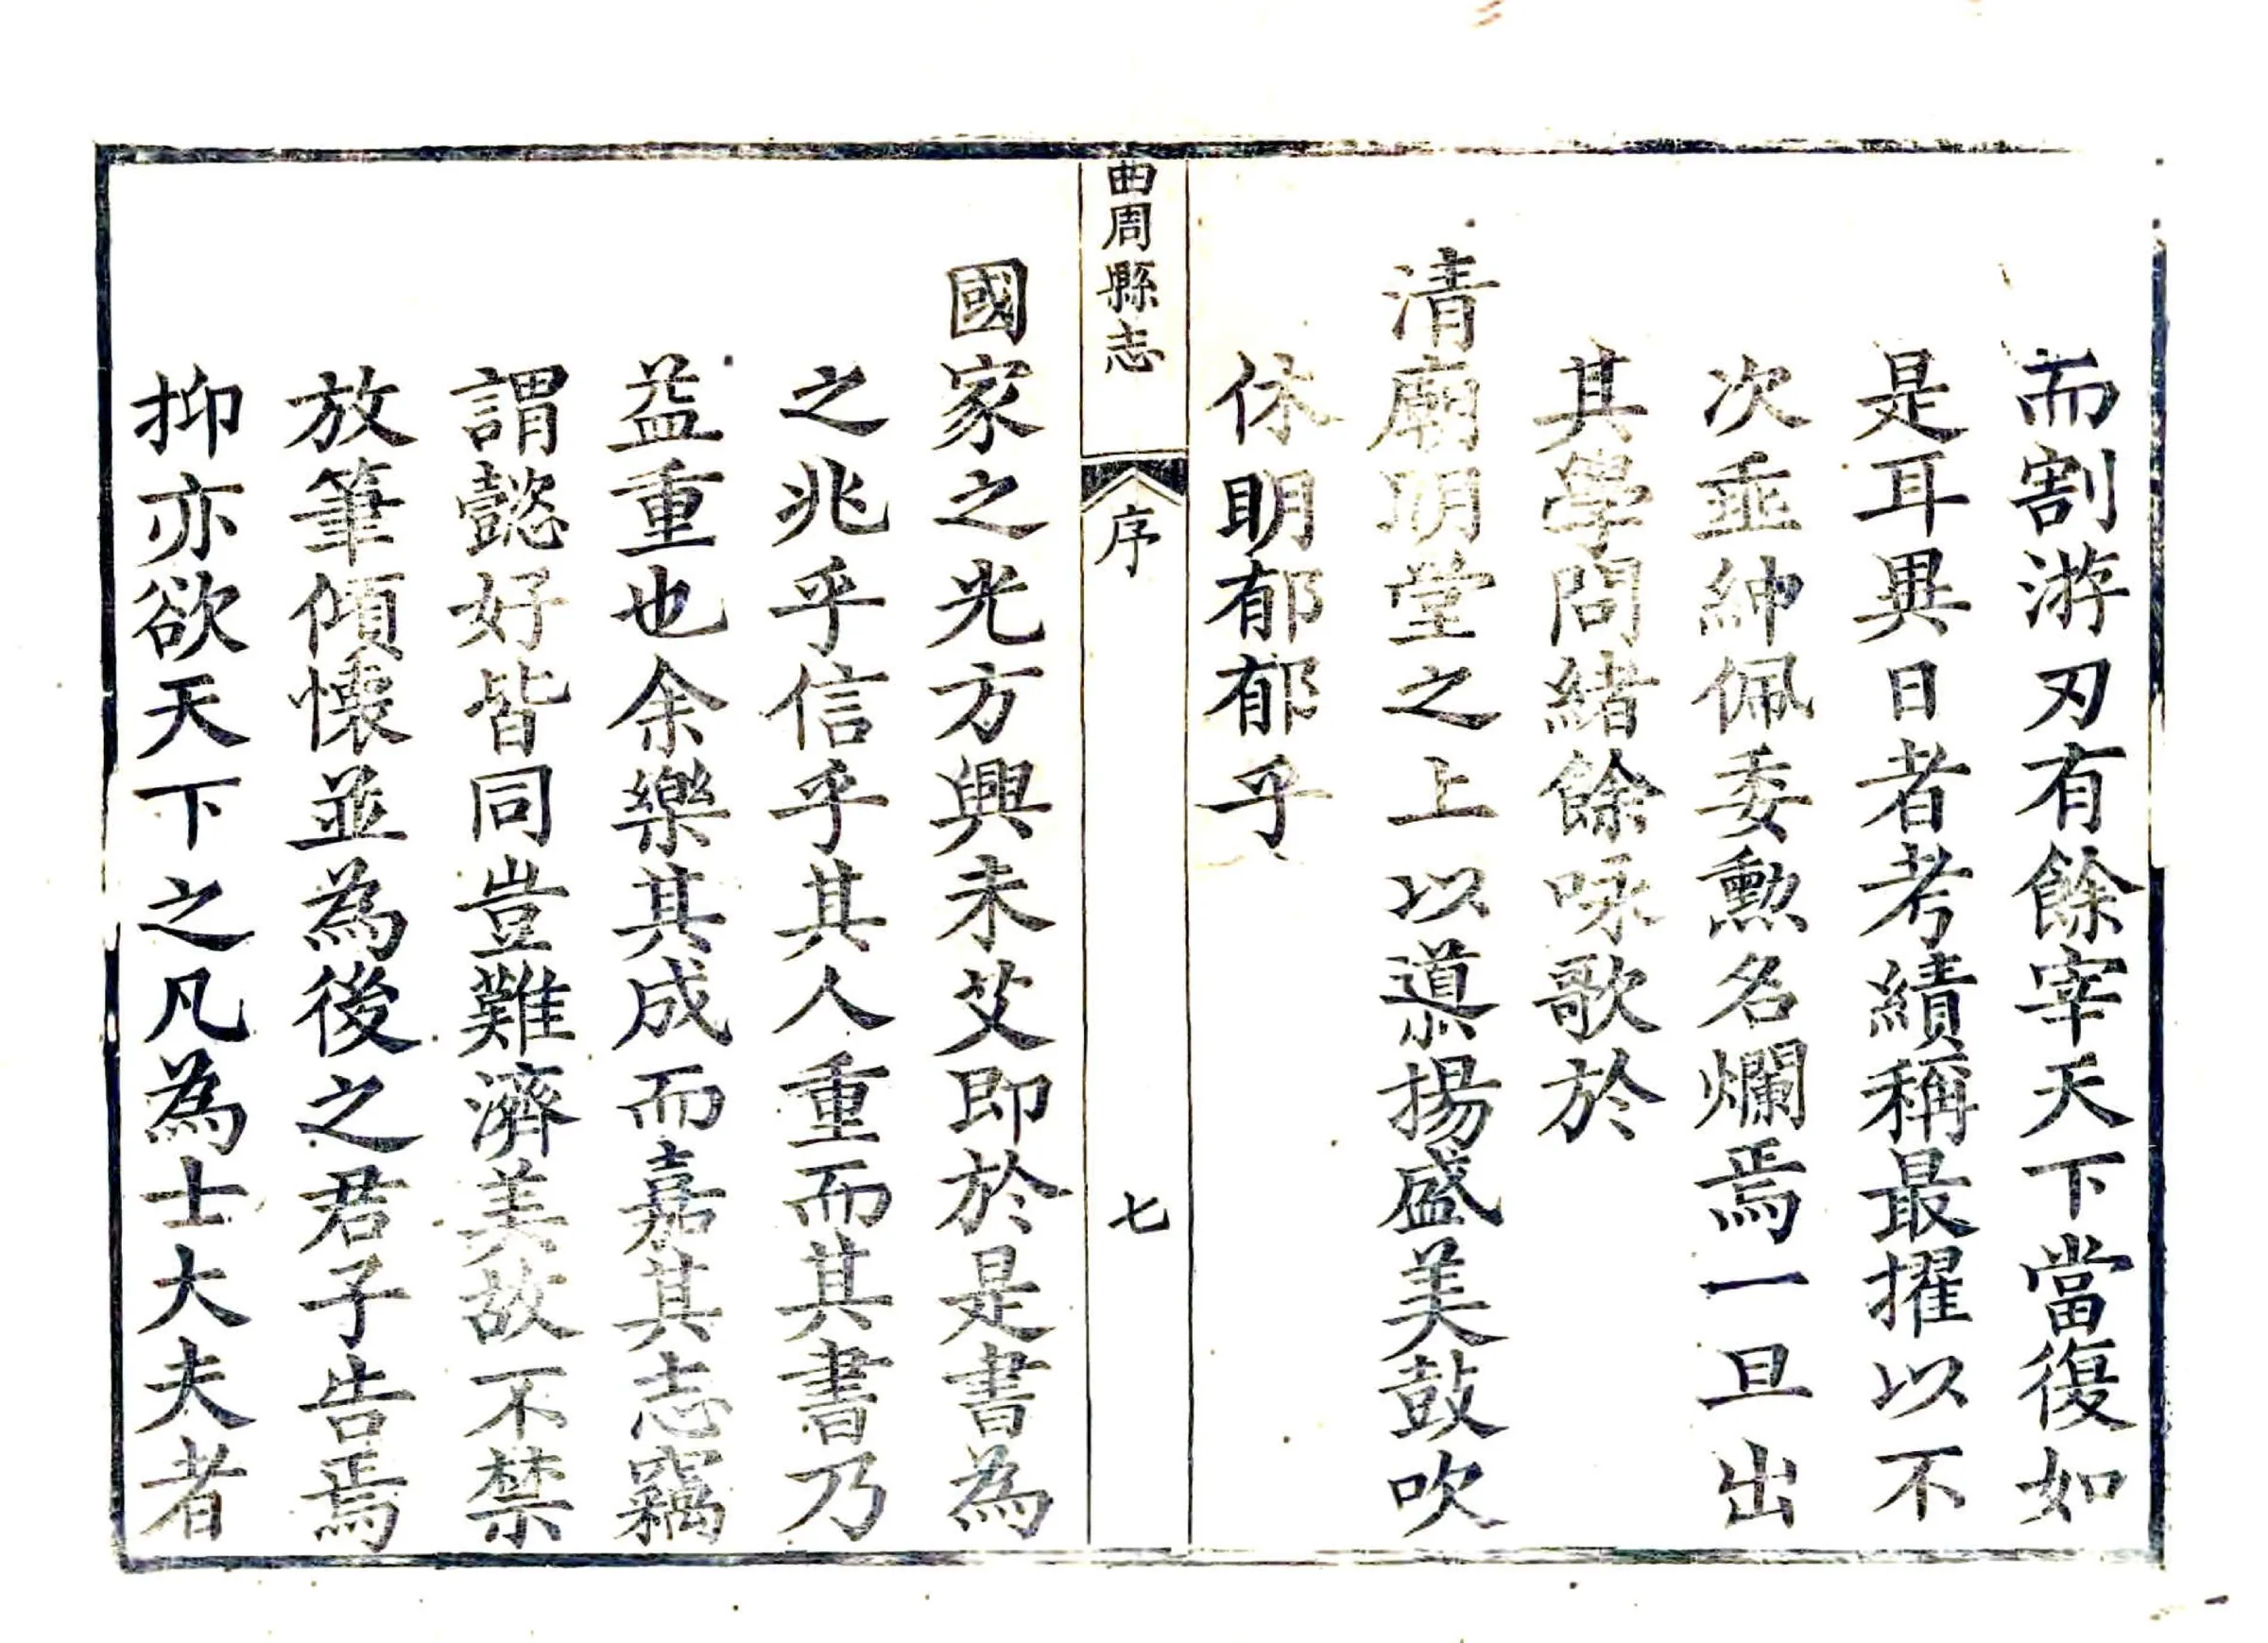 而割游刃有餘宰天下當復如
是耳異日者考績稱最擢以不
次垂紳佩委勲名爛焉一旦出
其學問緒餘咏歌於
清廟明堂之上以導揚盛美鼓吹
休明郁郁乎
曲周縣志
序
七
國家之光方興未艾即於是書為
之兆乎信乎其人重而其書乃
益重也余樂其成而嘉其志竊
謂懿好皆同豈難濟美故不禁
放筆傾懷並為後之君子告焉
抑亦欲天下之凡為士大夫者